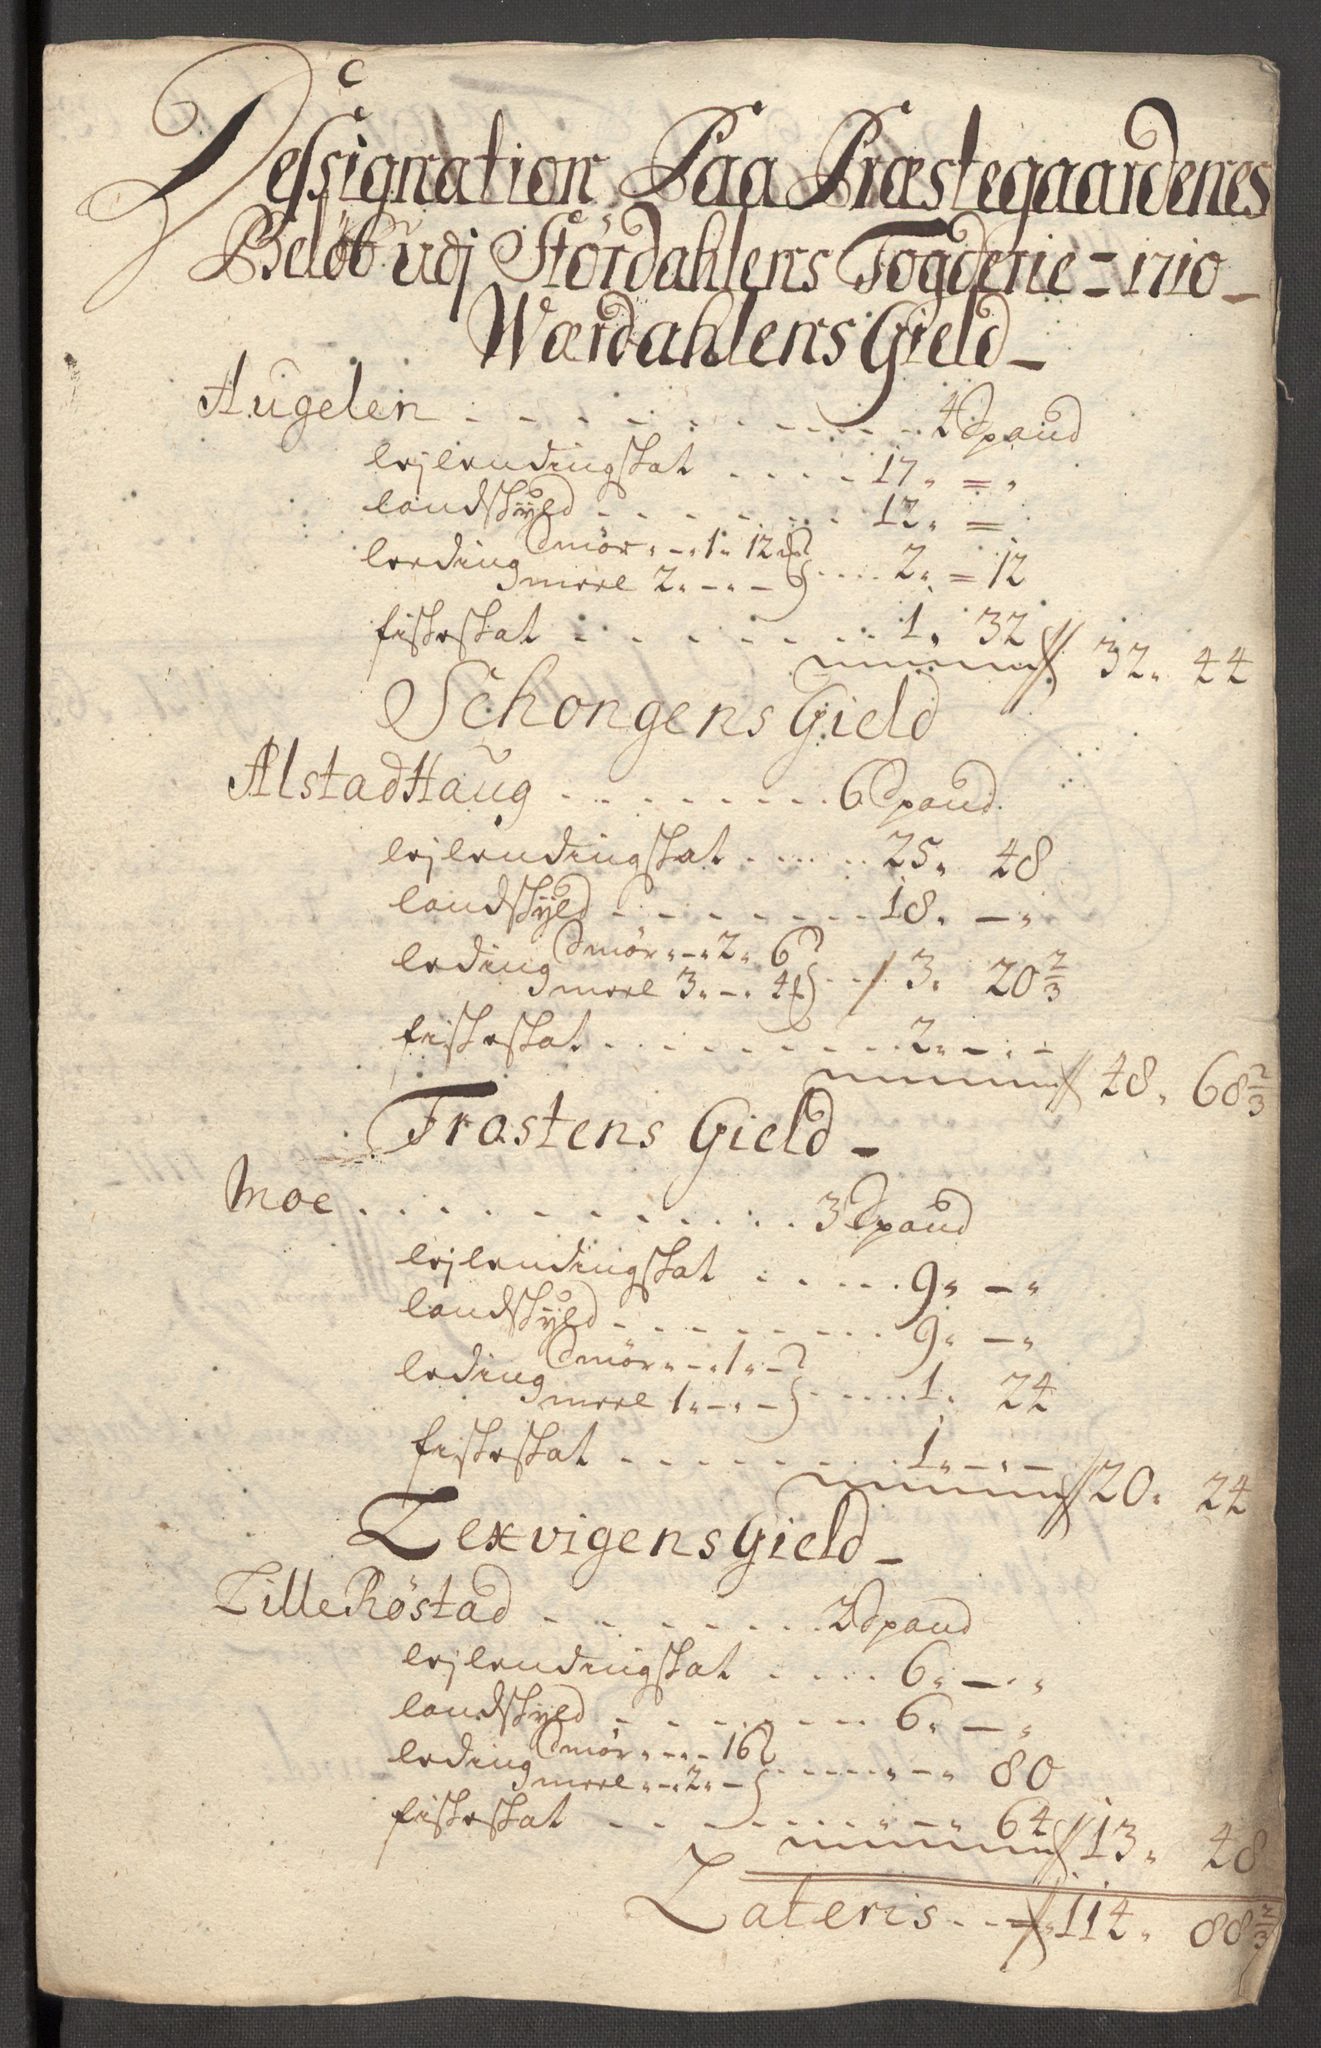 Dessignation Paa Præstegaardenes
Beløb udj Størdahlens Fogderie = 1710 –
Wærdahlens Gield –
Augelen . . . . . 4 Spand
leylendingskat . . . . 17 „ = „
landskyld . . . . 12 „ =
leeding Smør „ – „ 1 „ 12
meel 2 „ – „ – . . . . 2 „ = 12
fiskeskat . . . . 1 „ 32 // 32 „ 44
Schongens Gield
AlstadHaug . . . . 6 Spand
leylendingskat . . . . 25 „ 48
landskyld . . . . 18 „ – „
leding Smør „ – „ 2 „ 6
meel 3 „ – „ 4 . . . / 3 „ 20 2/3
fiskeskat . . . . 2 „ – „ – // 48 „ 68 2/3
Frostens Gield –
Moe . . . . 3 Spand
leylendingskat . . . . 9 „ – „
landskyld . . . . 9 „ – „
leding Smør „ – „ 1 „ –
meel 1 „ – „ – . . . . 1 „ 24
fiskeskat . . . . 1 „ – „ – // 20 „ 24
Lexvigens Gield –
Lille Røstad . . . . 2 Spand
leylendingskat . . . . 6 „ – „
landskyld . . . . 6 „ – „
leding Smør „ – „ – 16
meel „ – „ 2 „ – . . . . „ – „ 80
fiskeskat . . . . „ – „ 64 // 13 „ 48
Lateris . . . 114 „ 88 2/3